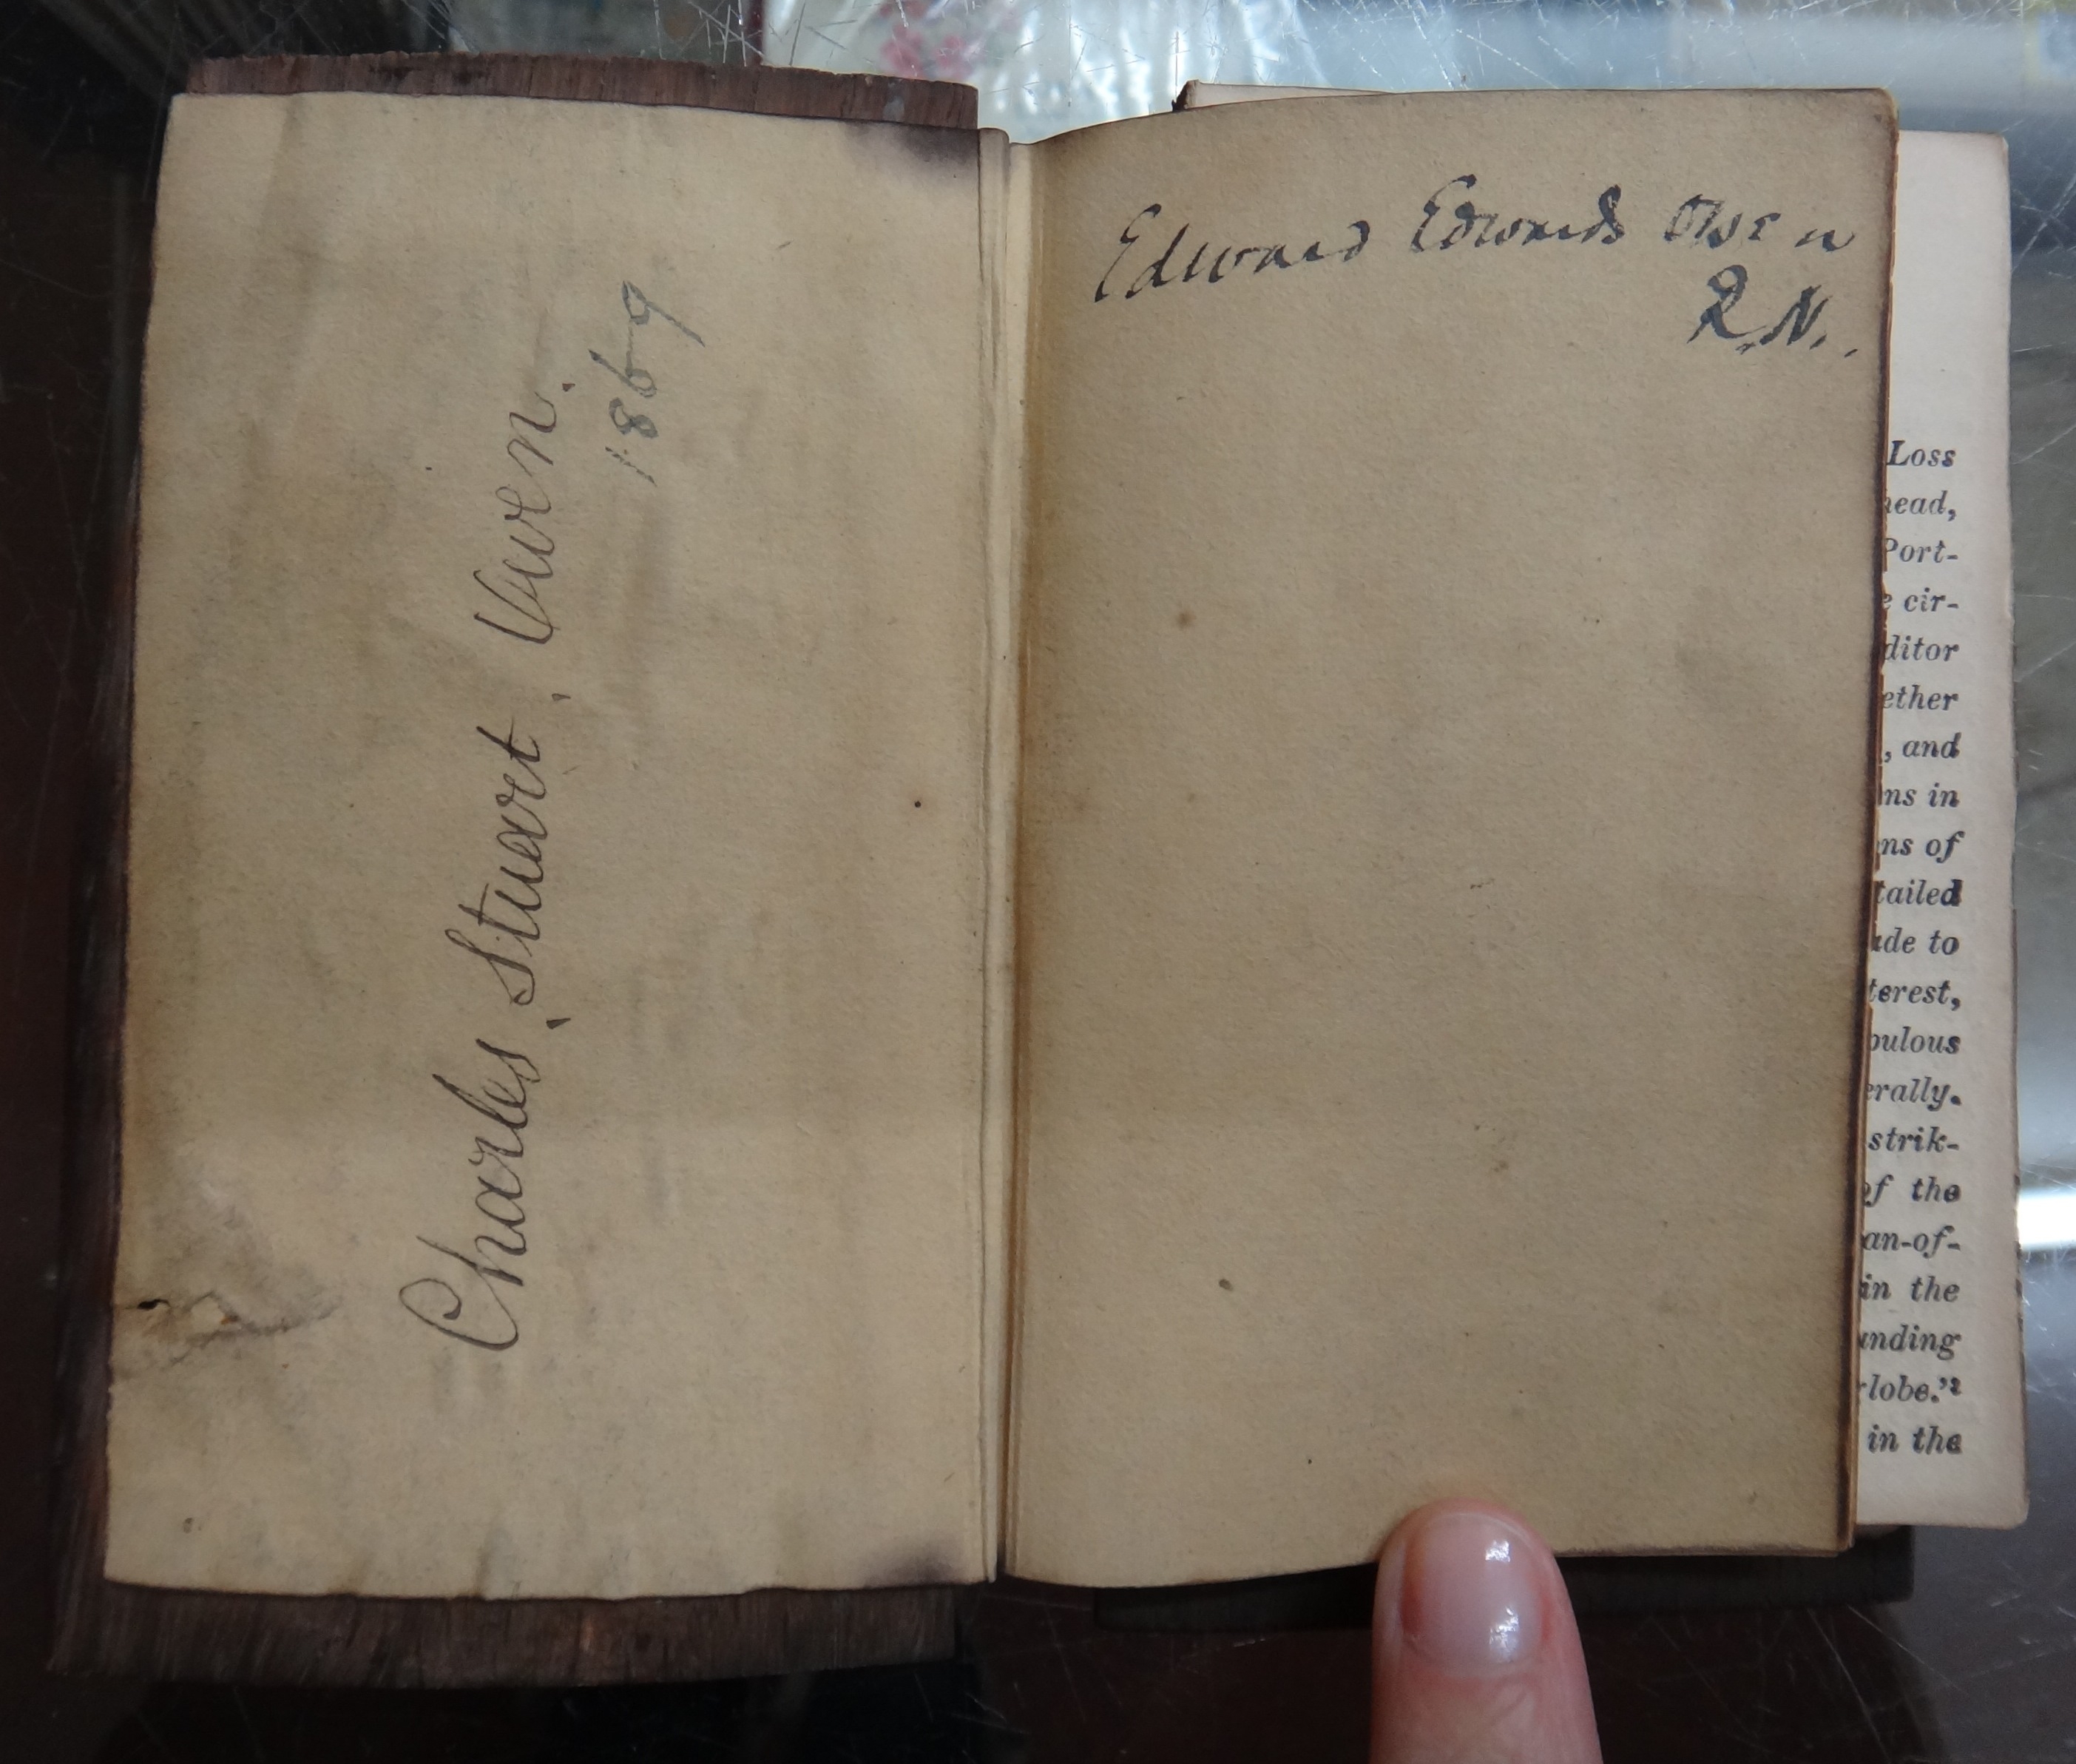 Charles, Stuart, Owen.
1869
Edward Edwards Owen
R.N.
Loss
head,
Port-
e cir-
ditor
ether
, and
ns in
ns of
tailed
ade to
terest,
bulous
erally.
strik-
of the
an-of-
in the
anding
lobe."
in the